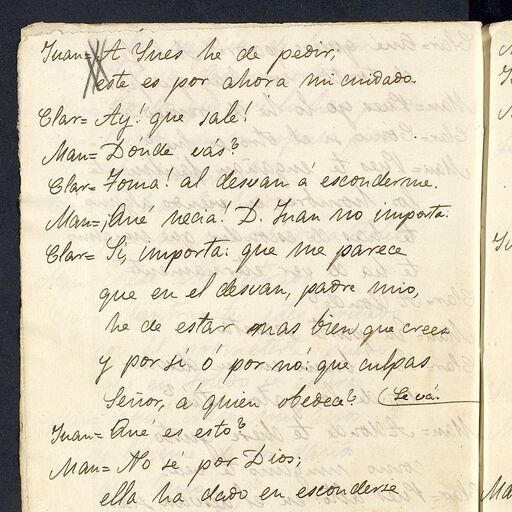 Juan= A Ynes he de pedir,
este es por ahora mi cuidado.
Clar= Ay! que sale!
Man= Dónde vás?
Clar= Toma! al desvan á esconderme.
Man= ¡Que necia! D. Juan no importa.
Clar= Si, importa: que me parece
que en el desvan, padre mio,
he de estar mas bien que crees
y por si ó por no: que culpas
Señor, á quien obedece? (Se vá.
Juan= Qué es esto?
Man= No sé por Dios;
ella ha dado en esconderse